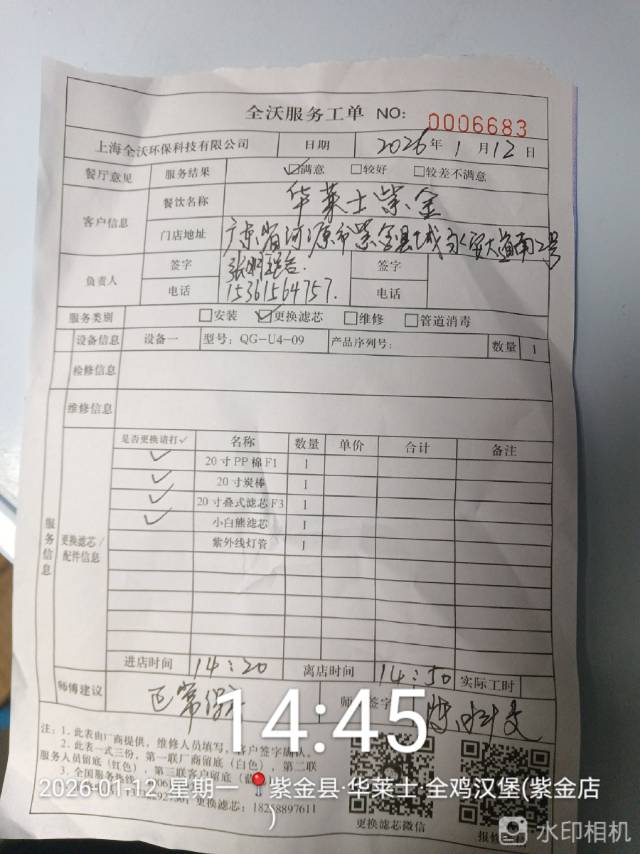 全沃服务工单 NO: 0006683
上海全沃环保科技有限公司 日期 2026年1月12日
餐厅意见 服务结果 ☑满意 □较好 □较差不满意
客户信息 餐饮名称 华莱士紫金
门店地址 广东省河源市紫金县城永安大道南2号
负责人 签字 签字
电话 15361564757. 电话
服务类别 □安装 ☑更换滤芯 □维修 □管道消毒
设备信息 设备一 型号: QG-U4-09 产品序列号: 数量 1
检修信息
维修信息
服务信息
更换滤芯/配件信息
是否更换请打✓ 名称 数量 单价 合计 备注
✓ 20寸PP棉F1 1
✓ 20寸炭棒 1
✓ 20寸叠式滤芯F3 1
✓ 小白熊滤芯 1
紫外线灯管 1
进店时间 14:20 离店时间 14:50 实际工时
师傅建议 正常 签字
14:45
注: 1. 此表由厂商提供, 维修人员填写, 客户签字确认.
2. 此表一式三份, 第一联厂商留底(白色), 第二联
服务人员留底(红色), 第三联客户留底
3. 全国服务热线:
更换滤芯: 18258897611
更换滤芯微信
2026-01-12 星期一 紫金县·华莱士·全鸡汉堡(紫金店
)
水印相机